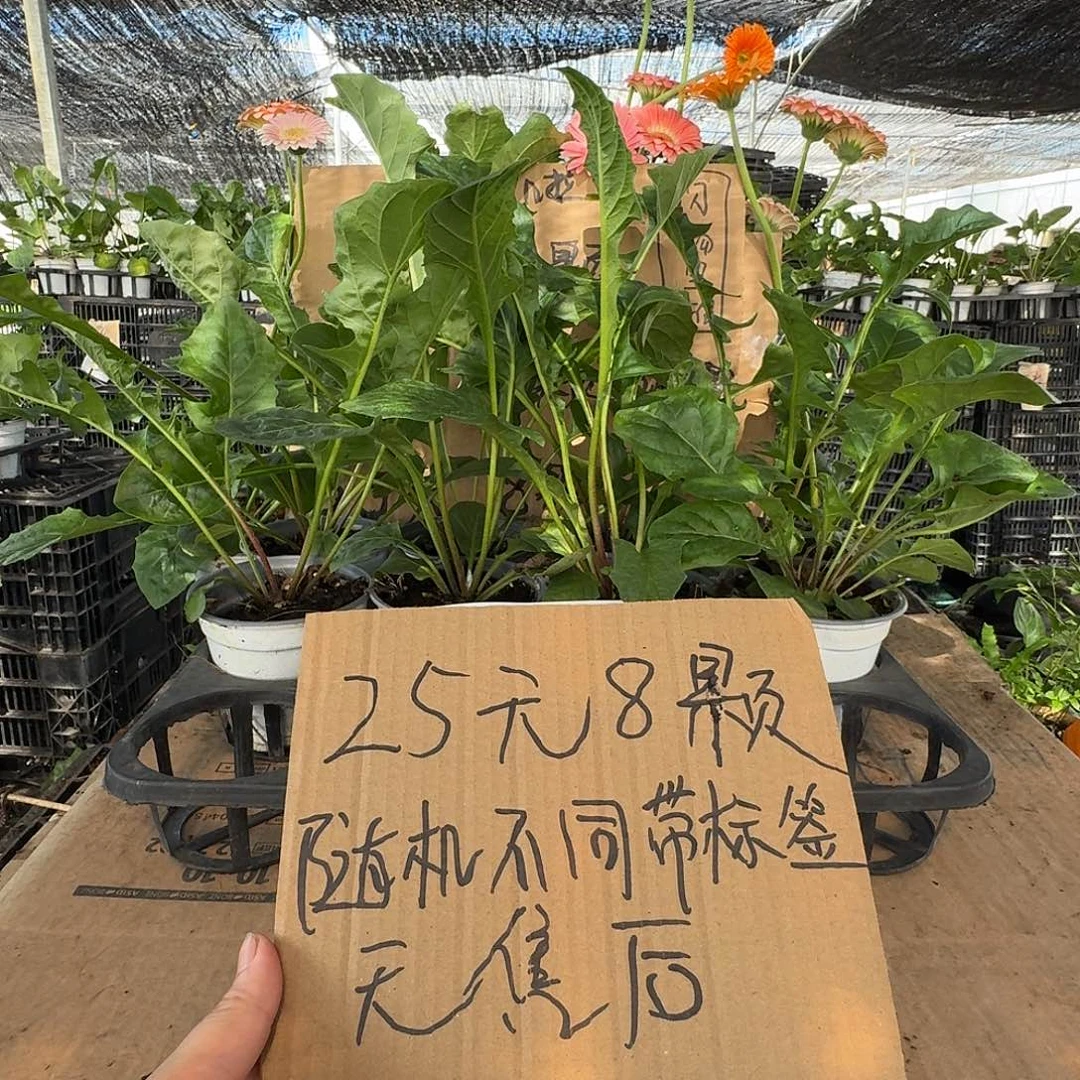 25元8颗
随机不同带标签
无售后